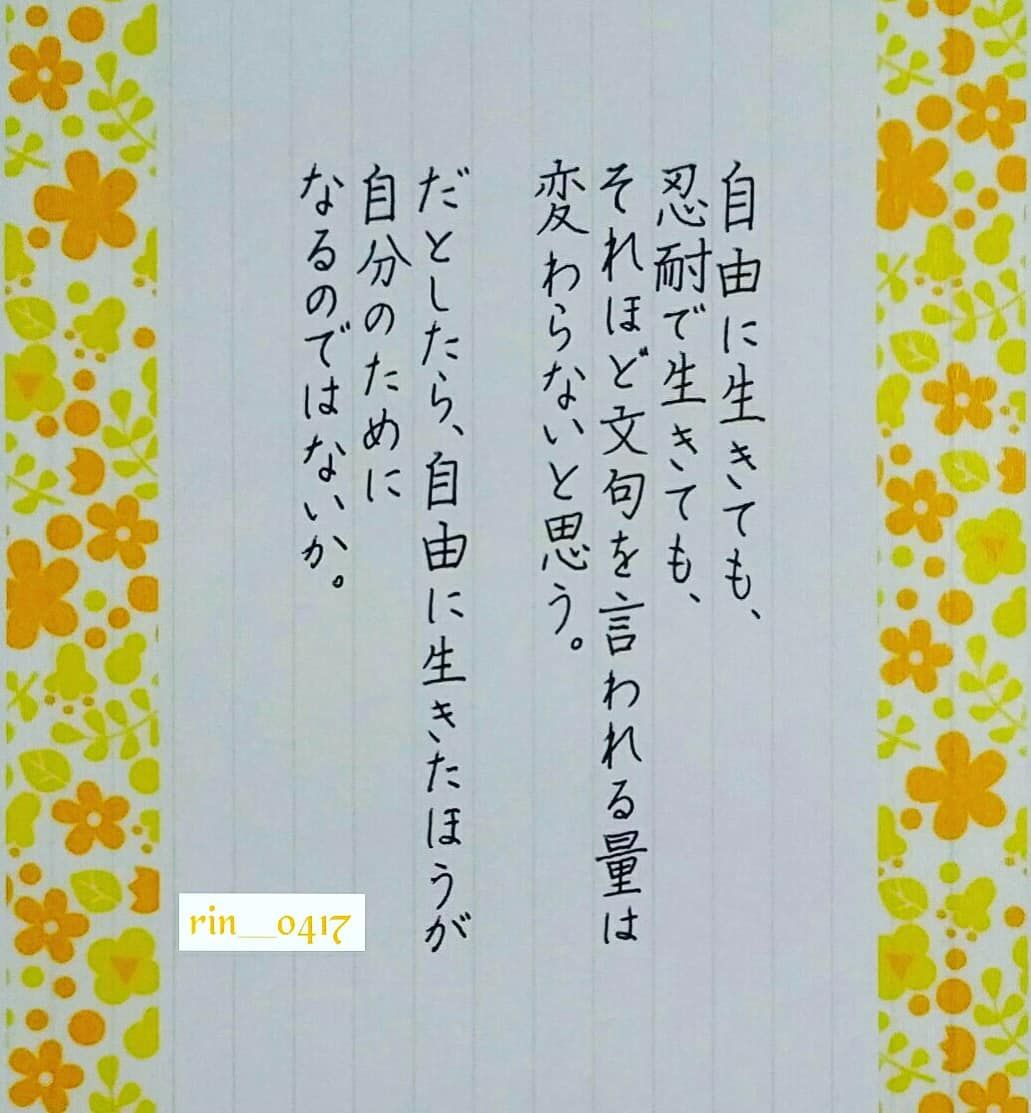 自由に生きても、
忍耐で生きても、
それほど文句を言われる量は
変わらないと思う。
だとしたら、自由に生きたほうが
自分のために
なるのではないか。
rin__0417